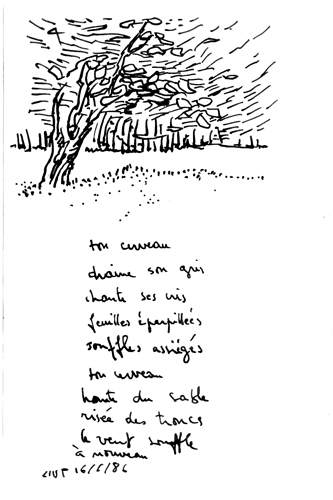 ton cerveau
chaine son gris
chante ses vis
feuilles éparpillées
souffles assiégés
ton cerveau
du sable
risée des troncs
le vent souffle
à nouveau
16/5/86